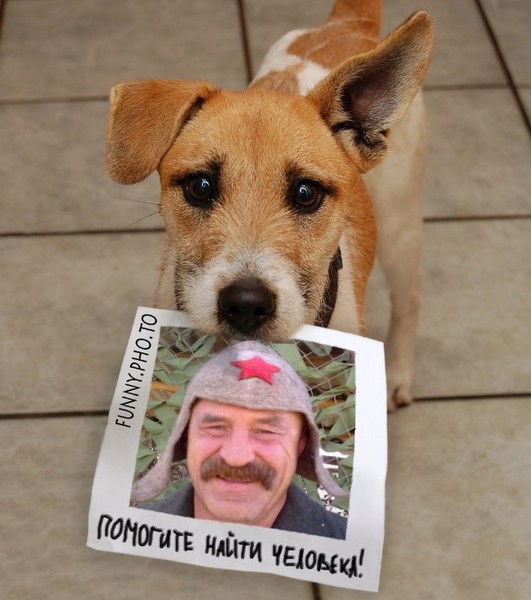 FUNNY.PHO.TO
ПОМОГИТЕ НАЙТИ ЧЕЛОВЕКА!